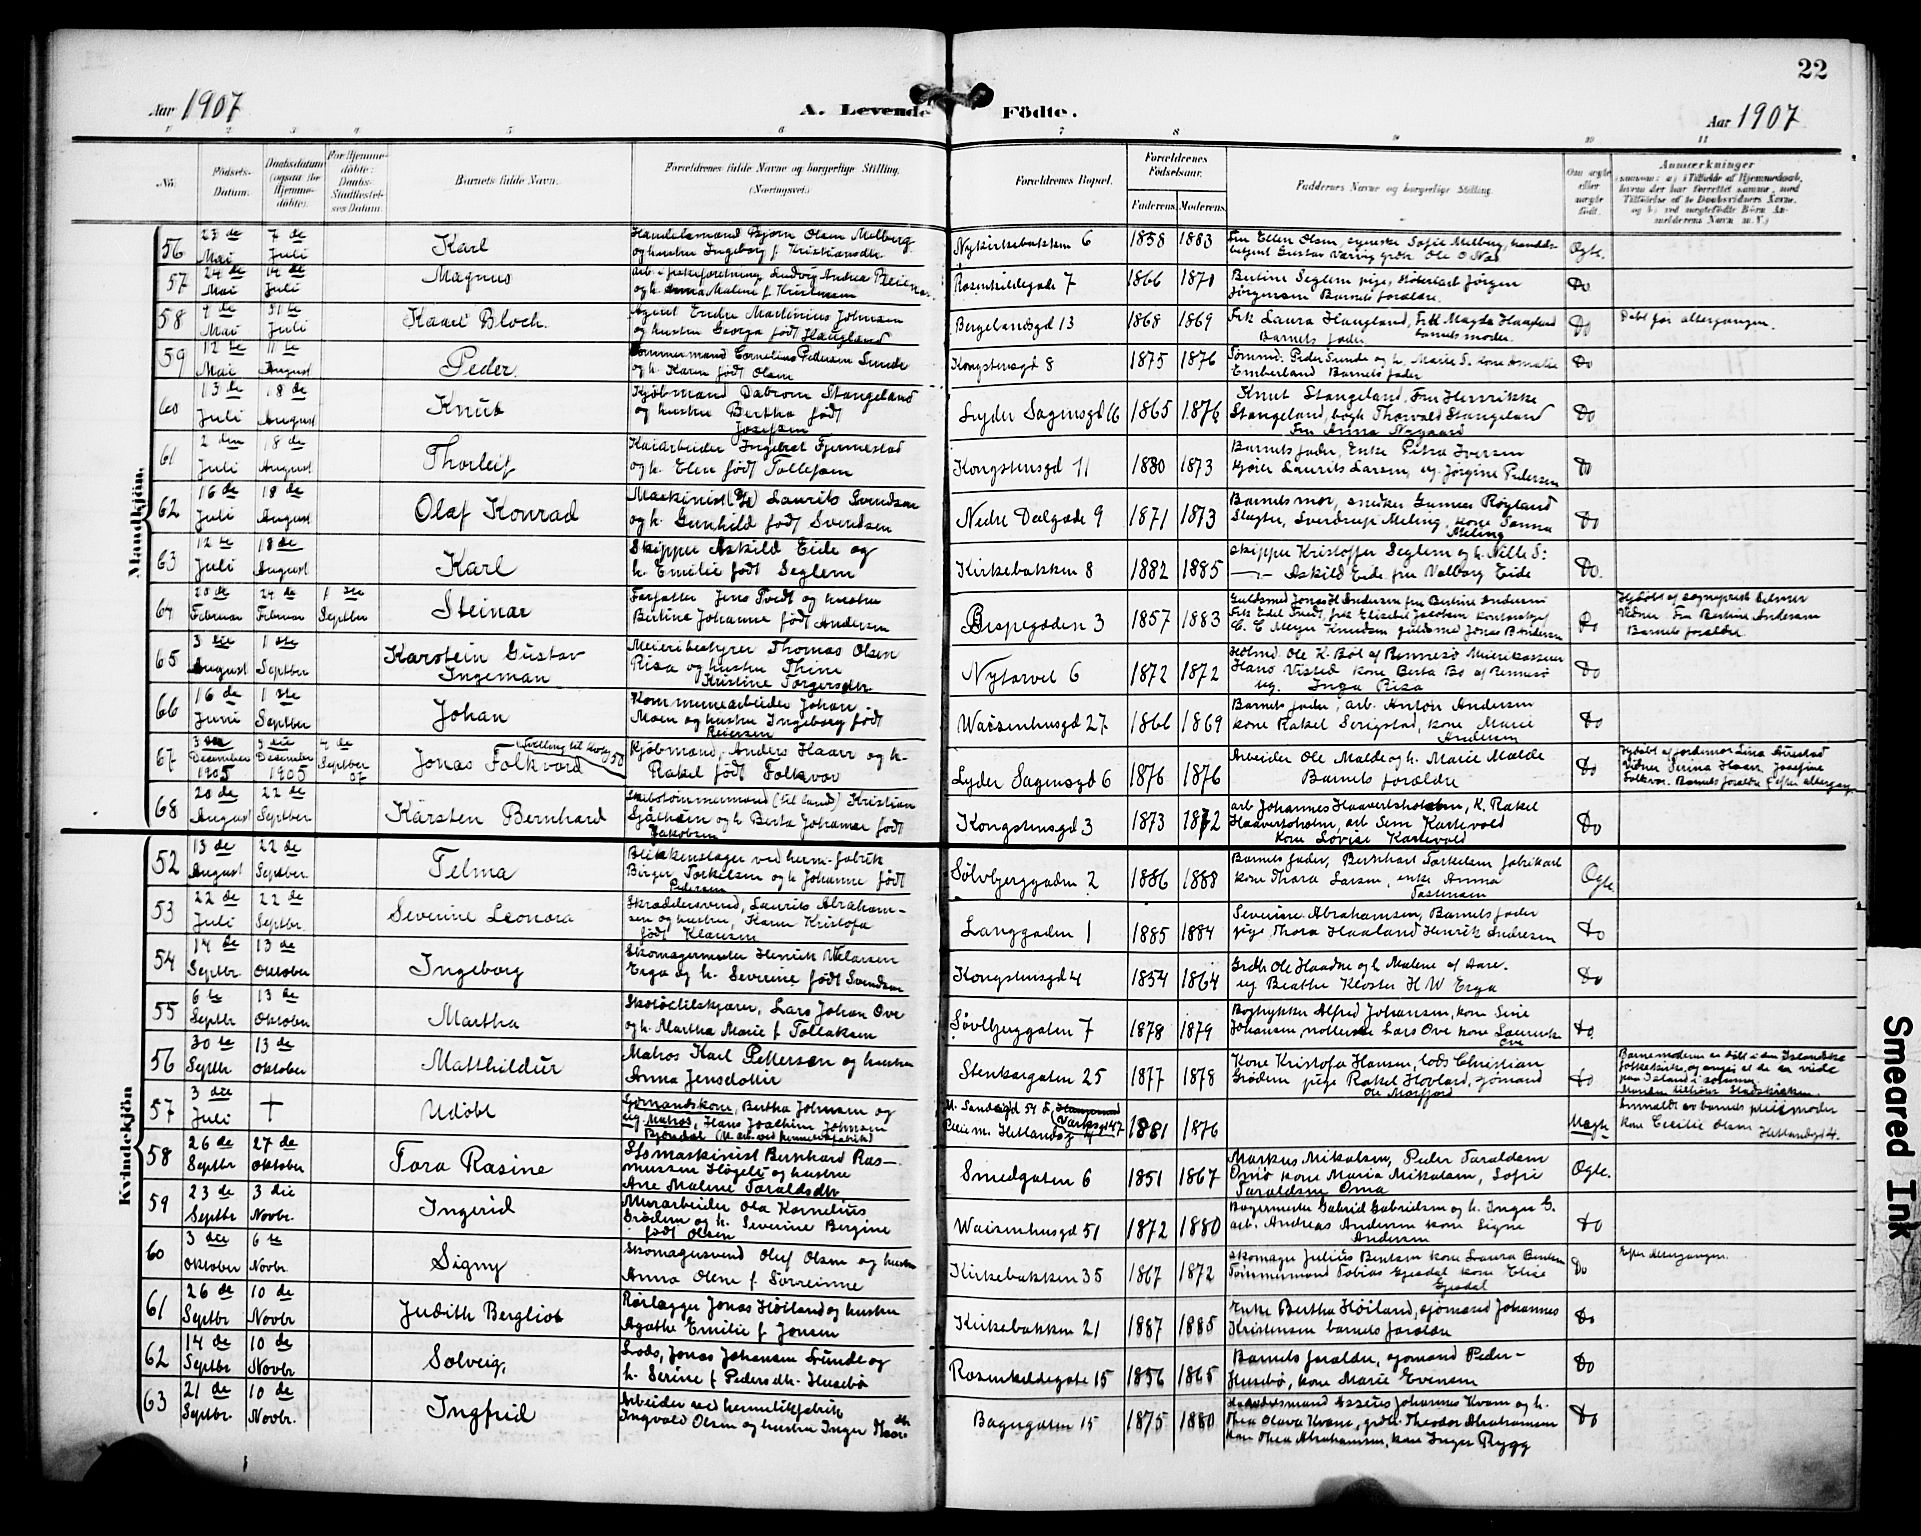 22
Aar 1907
A. Levende Födte.
Aar 1907
1 2 3 4 5 6 7 8 9 10 11
No.
Födsels-Datum.
Daabsdatum (ogsaa for Hjemme-döbte).
For Hjemme-döbte: Daabs-Stadfæstel-ses-Datum.
Barnets fulde Navn.
Forældrenes fulde Navne og borgerlige Stilling. (Næringsvei.)
Forældrenes Bopæl.
Forældrenes Födselsaar.
Faderens. Moderens.
Faddernes Navne og borgerlige Stilling.
Om ægte eller uægte födt.
Anmærkninger
Mandkjön.
56 23de Mai 7de Juli Karl Handelsmand Bjørn Olsen Melberg og hustru Ingeborg f. Kristiansdtr. Nykirkebakken 6 1858 1883 Ægte.
57 24de Mai 14de Juli Magnus Rosenkildegade 7 1866 1870 Bertine Seglem pige, Jørgen Jørgensen Barnets forældre. Do
58 Mai 31te Juli Kaare Bloch. Agent Endre Martinius Johnsen og hustru Georga født Haugland Bergelandsgd 13 1868 1869 Frk Laura Haugland, Frk Magda Haugland Barnets fader Barnets moder. Do Døbt før altergangen.
59 12te Mai 11te August Peder. Tømmermand Cornelius Pedersen Sunde og h. Karen født Olsen Kongstensgd 8 1875 1876 Tømmd. Peder Sunde og h. Marie S. kone Amalie Emberland Barnets fader Do
60 13de Juli 18de August Knut Kjøbmand Stangeland og hustru Bertha født Josefsen Lyder Sagensgd 16 1865 1876 Knut Stangeland, Fru Henrikke Stangeland, bogh. Thorvald Stangeland Fru Anna Nygaard Do
61 2den Juli 18de August Thorleif Kaiarbeider Ingebret Fjermestad og h. Elen født Tollefsen Kongstensgd 11 1880 1873 Barnets fader, Enke Petra Iversen Gjøler Laurits Larsen, ug. Jørgine Pedersen Do
62 16de Juli 18de August Olaf Konrad Maskinist Laurits Svendsen og h. Gunhild født Svendsen Nedre Dalgade 9 1871 1873 Barnets mor, snedker Gunnar Røyland Slagter, Sverdrup Meling, kone Tanna Meling Do
63 12te Juli 18de August Karl Skipper Askild Eide og h. Emilie født Seglem Kirkebakken 8 1882 1885 Skipper Kristoffer Seglem og h. Nille S: Askild Eide fru Valborg Eide Do.
64 20de Februar 24de Februar 1ste Septber Steinar Forfatter Jens Tvedt og hustru Bertine Johanne født Andersen Bispegaden 3 1857 1883 Guldsmed Jonas H. Andersen fru Bertine Andersen Frk Edel Tvedt, frk Elisabet Jacobsen C. C. Meyer Knudsen guldsmed Jonas B Andersen Do Vidner. Fru Bertine Andersen Barnets forældre.
65 3die August 1ste Septber Karstein Gustav Ingeman Meieribestyrer Thomas Olsen Risa og hustru Thine Kristine Torgersdtr Nytorvet 6 1872 1872 Ole K. Bøe af Rennesø Meierikasserer Hans Visted kone Berta Bø af Rennesø ug. Inga Risa Do
66 16de Juni 1ste Septber Johan Kommunearbeider Johan Moen og hustru Ingeborg født Reiersen Waisenhusgd 27 1866 1869 Barnets fader, arb. Anton Andersen kone Rakel Serigstad, kone Marie Andersen Do
67 3die December 1905 3die December 1905 4de Septber 07 Jonas Folkvord Kjøbmand Anders Haarr og h. Rakel født Folkvor Lyder Sagensgd 6 1876 1876 Arbeider Ole Malde og h. Marie Malde Barnets forældre Do Vidner Serina Haarr Josefine Folkvor. Barnets forældre
68 20de August 22de Septber Karsten Bernhard Skibstømmermand (til lands) Kristian og h. Berta Johanne født Jakobsen Kongstensgd 3 1873 1872 arb Johannes Haavertsholmen, K. Rakel Haavertsholm, arb Sem Kartevold kone Lovise Kartevold Do
Kvindekjön
52 13de August 22de Septber. Telma Blikkenslager ved herm.fabrik Birger Torkelsen og h Johanne født Pedersen Sølvbjerggaden 2 1886 1888 Barnets fader, Bernhart Torkelsen fabrikarb kone Thora Larsen, enke Anna Tostensen Ægte.
53 22de Juli 22de Septbr. Severine Leonora Skræddersvend, Laurits Abraham-sen og hustru, Karen Kristofa født Klausen Langgaden 1 1885 1884 Severine Abrahamsen, Barnets fader pige, Thora Haaland Henrik Andresen Do
54 14de Septbr 13de Oktober Ingeborg Skomagermester Henrik Wilarsen Erga og h. Severine født Svendsen Kongstensgd 4 1854 1864 Grdbr. Ole Haadne og h Malene af Aare. ug Beathe Kloster H W Erga Do
55 6te Septbr 13de Oktober Martha Skotøitilskjærer, Lars Johan Ove og h. Martha Marie f Tollaksen Søvlbjerggaten 7 1878 1879 Bogtrykker Alfred Johansen, kone Sine Johansen, Lars Ove kone Laurentse Ove Do.
56 30te Septbr 13de Oktober Matthildur Matros Karl Pettersen og hustru Anna Jensdottir Stenkargaten 25 1877 1878 Kone Kristofa Hansen, lods Christian Grødem pige Rakel Hovland, sjømand Ole Mosfjord Do
57 3die Juli † Udøbt Gomandskone, Bertha Johnsen og ug. Matros, Hans Joachim Johnsen 1881 1876 Uægte Anmeldt av barnets pleiemoder kone Cecilie Olsen Hetlandsgd 4.
58 26de Septbr 27de Oktober Tora Rasine Lomaskinist Bernhard Ras-mussen Høgeli og hustru Ane Malene Taraldsdtr. Smedgaten 6 1851 1867 Markus Mikalsen, Peder Taraldsen Omø kone Maria Mikalsen, Sofie Taraldsen Omø Ægte.
59 23de Septbr 3die Novbr. Ingerid Murarbeider Ola Kornelius Grødem og h. Severine Bergine født Olsen Waisenhusgd 51 1872 1880 Bagermester Gabriel Gabrielsen og h. Inger G. arb. Andreas Andersen kone Signe Andersen Do
60 3die Oktober 6te Novbr. Signy Skomagersvend Oluf Olsen og hustru Anna Olene f. Kirkebakken 35 1867 1872 Skomager Julius Bentsen kone Laura Bentsen Tømmermand Tobias Gjesdal kone Elise Gjesdal Do Efter Altergangen.
61 26de Septbr 10de Novbr. Judith Bergliot Rørlægger Jonas Høiland og hustru Agathe Emilie f Jonsen Kirkebakken 21 1887 1885 Enke Bertha Høiland, sjømand Johannes Kristensen barnets forældre Do
62 14de Septbr 10de Novbr Solveig, Lods, Jonas Johansen Sunde og h. Serine f Pedersdtr. Husebø Rosenkildegate 15 1856 1865 Barnets forældre, sjømand Peder Husebø, kone Marie Evensen Do
63 21de Septbr. 10de Novbr. Ingfrid Arbeider ved hermetikfabrik Ingvald Olsen og hustru Inger Bagergaten 15 1875 1880 Johannes Kvam og h. Thea Olava Kvam, grdbr. Theodor Abrahamsen kone Thea Abrahamsen, kone Inger Rygg Do
Smeared Ink